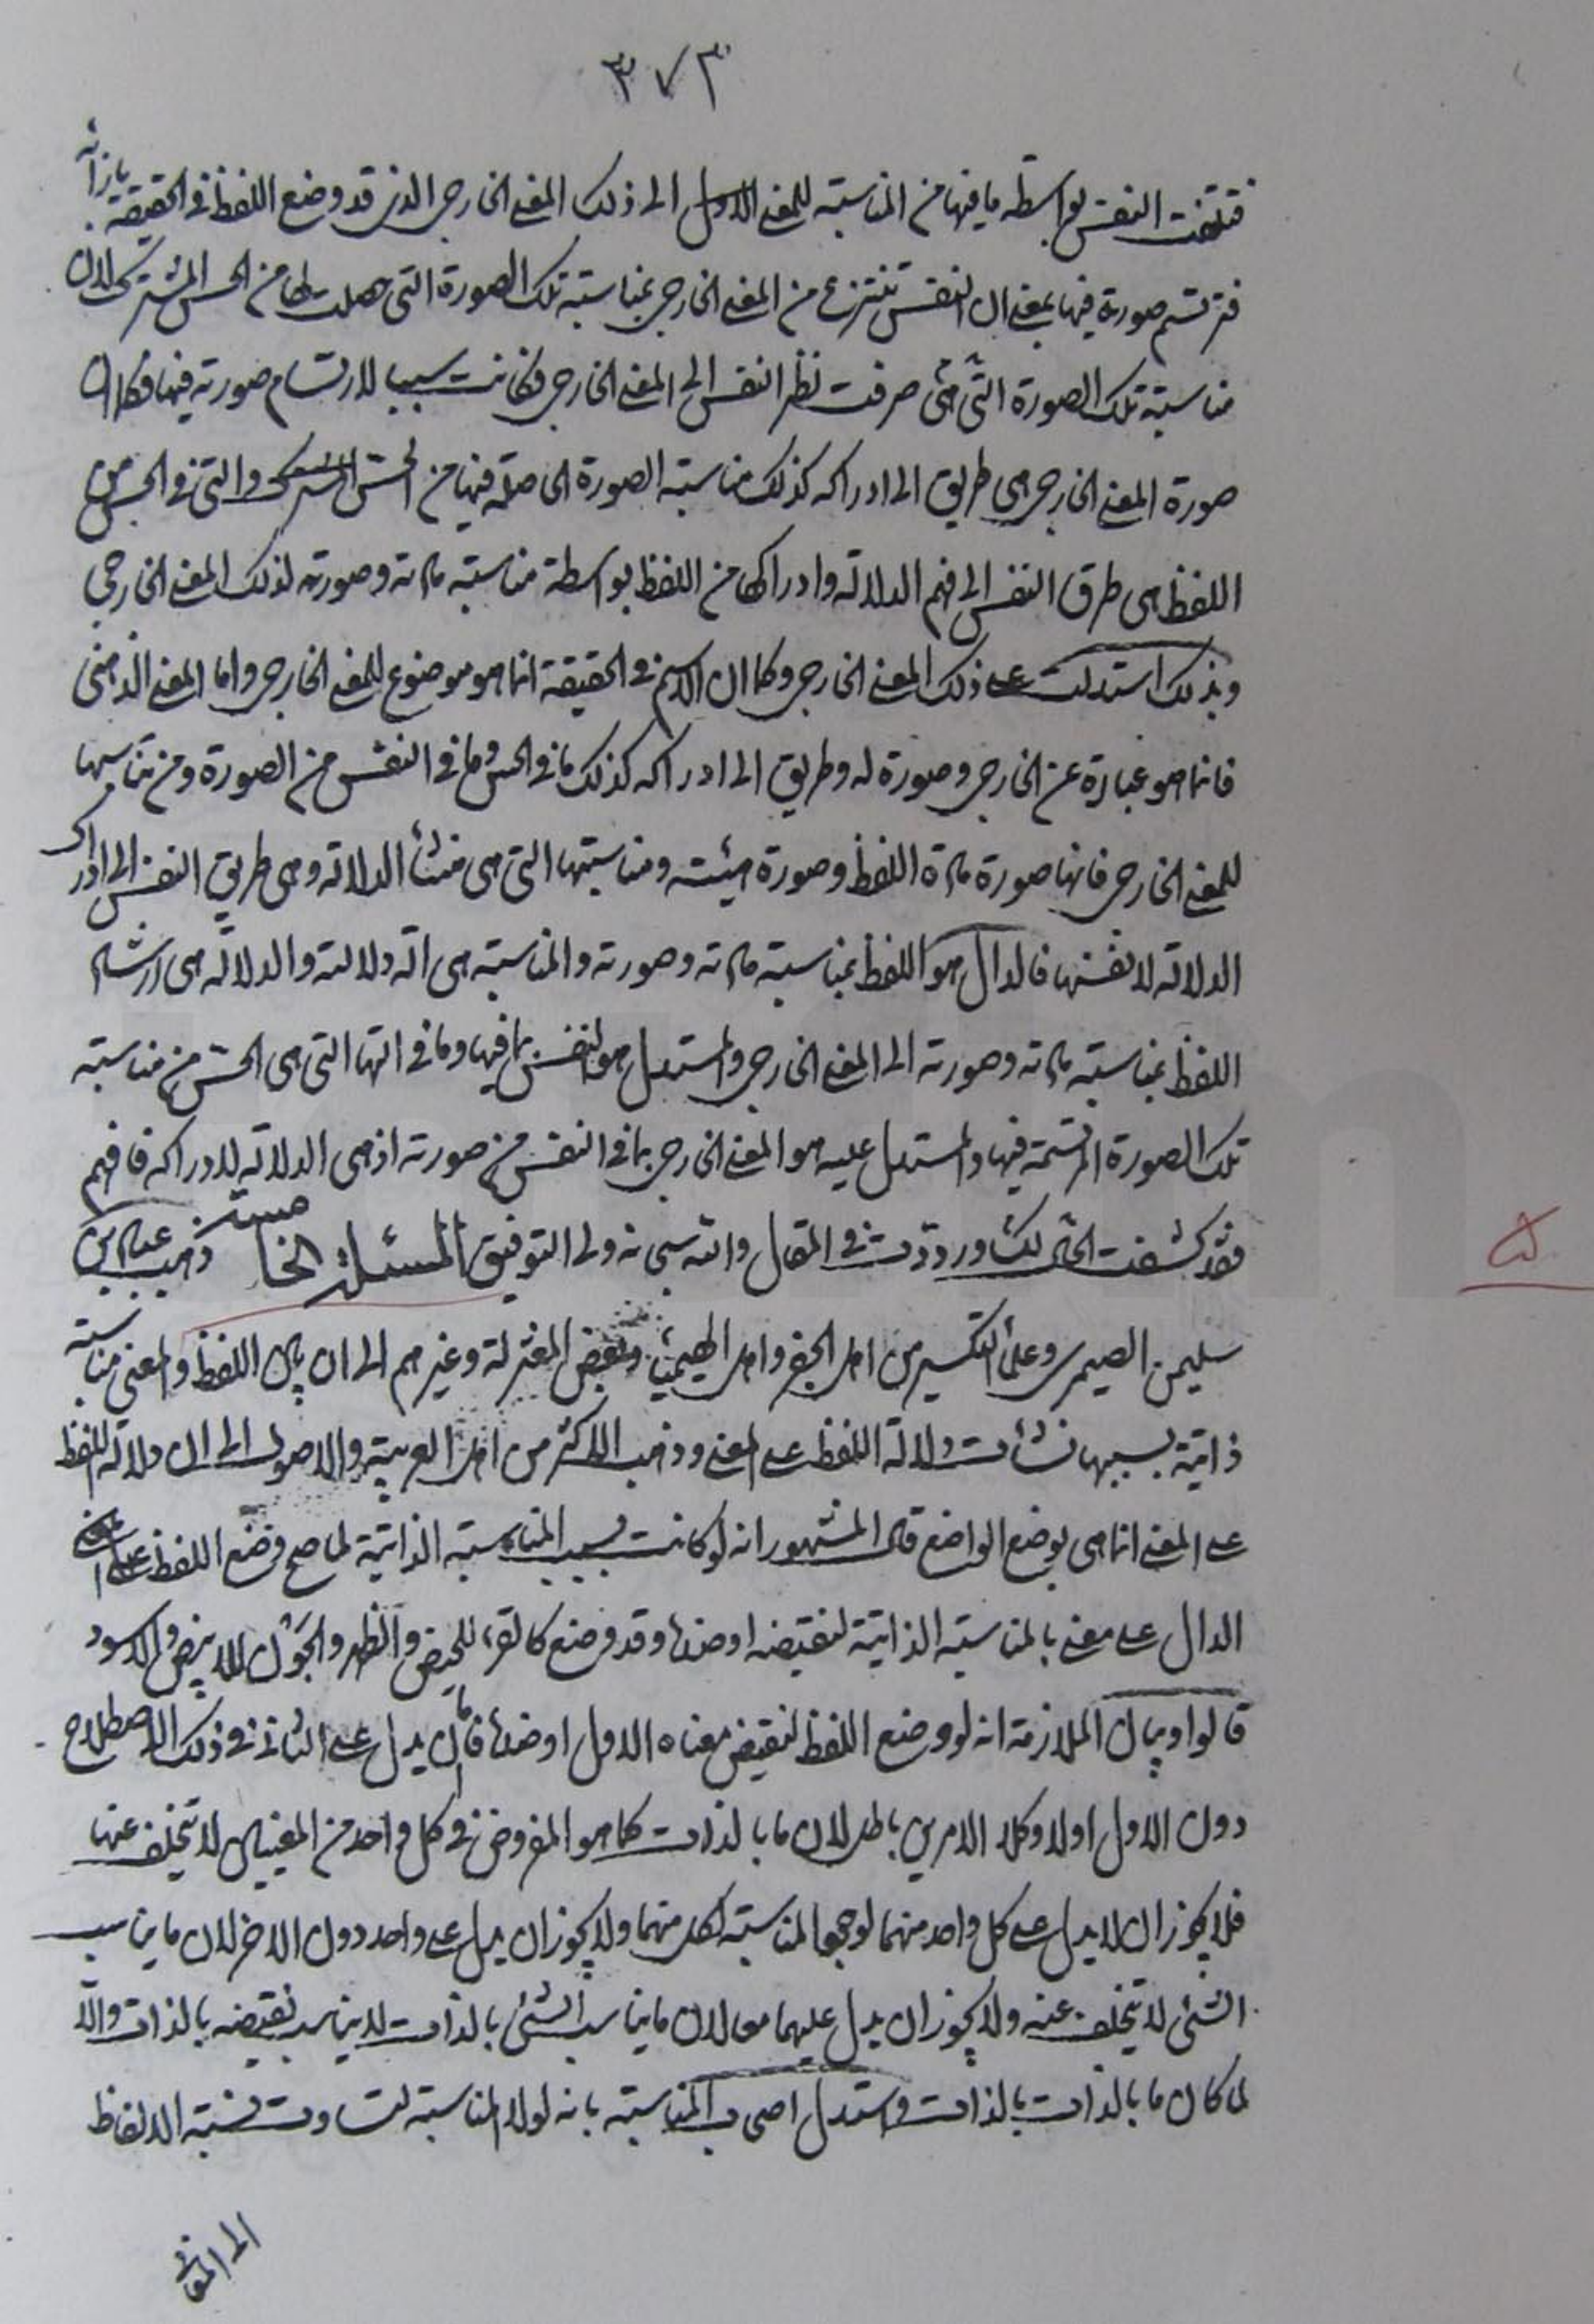 ٣٧٣
فتلتفت النفس بواسطة ما فيها من المناسبة للمعنى الاول الى ذلك المعنى الخارجي الذي قد وضع اللفظ في الحقيقة بإزائه
فترتسم صورة فيها بمعنى ان النفس تنتزع من المعنى الخارجي بمناسبة تلك الصورة التي حصلت لها من الحس المشترك لان
مناسبة تلك الصورة التي هي صرفت نظر النفس الى المعنى الخارجي فكانت سببا لارتسام صورته فيها فكما ان
صورة المعنى الخارجي هي طريق الى ادراكه كذلك مناسبة الصورة الحاصلة فيها من الحس المشترك والتي في الحس من
اللفظ هي طرق النفس الى فهم الدلالة وادراكها من اللفظ بواسطة مناسبة مادته وصورته لذلك المعنى الخارجي
وبذلك استدلت على ذلك المعنى الخارجي وكما ان الاسم في الحقيقة انما هو موضوع للمعنى الخارجي واما المعنى الذهني
فانما هو عبارة عن الخارجي وصورة له وطريق الى ادراكه كذلك ما في الحس وما في النفس من الصورة ومن تناسبها
للمعنى الخارجي فانها صورة مادة اللفظ وصورة هيئته ومناسبتها التي هي منشأ الدلالة وهي طريق النفس الى ادراك
الدلالة لا نفسها فالدال هو اللفظ بمناسبة مادته وصورته والمناسبة هي آلة دلالته والدلالة هي ارشاد
اللفظ بمناسبة مادته وصورته الى المعنى الخارجي والمستدل هو النفس بما فيها وما في آلتها التي هي الحس من مناسبة
تلك الصورة المرتسمة فيها والمستدل عليه هو المعنى الخارجي بما في النفس من صورته اذ هي الدلالة لادراكه فافهم
فقد كشفت الحال لك ورددت في المقال والله سبحانه ولي التوفيق المسئلة الخامسة ذهب عباد بن
سليمن الصيمري وعلماء التكسير من اهل الجفر واهل الهيميا وبعض المعتزلة وغيرهم الى ان بين اللفظ والمعنى مناسبة
ذاتية بسببها نشأت دلالة اللفظ على المعنى وذهب الاكثر من اهل العربية والاصول الى ان دلالة اللفظ
على المعنى انما هي بوضع الواضع قال المشهور انه لو كانت بسبب المناسبة الذاتية لما صح وضع اللفظ
الدال على معنى بالمناسبة الذاتية لنقيضه او ضده وقد وضع كالقرء للحيض والطهر والجون للابيض والاسود
قالوا وبيان الملازمة انه لو وضع اللفظ لنقيض معناه الاول او ضده فاما ان يدل على الثاني في ذلك الاصطلاح
دون الاول اولا وكلا الامرين باطل لان ما بالذات كما هو المفروض في كل واحد من المعنيين لا تتخلف عنها
فلا يجوز ان لا يدل على كل واحد منهما لوجود المناسبة لكل منهما ولا يجوز ان يدل على واحد دون الاخر لان ما يناسب
الشئ لا يتخلف عنه ولا يجوز ان يدل عليهما معا لان ما يناسب الشئ بالذات لا يناسب نقيضه بالذات والا
لما كان ما بالذات بالذات واستدل اصحاب المناسبة بانه لولا المناسبة لتساوت نسبة الالفاظ
الى المعا